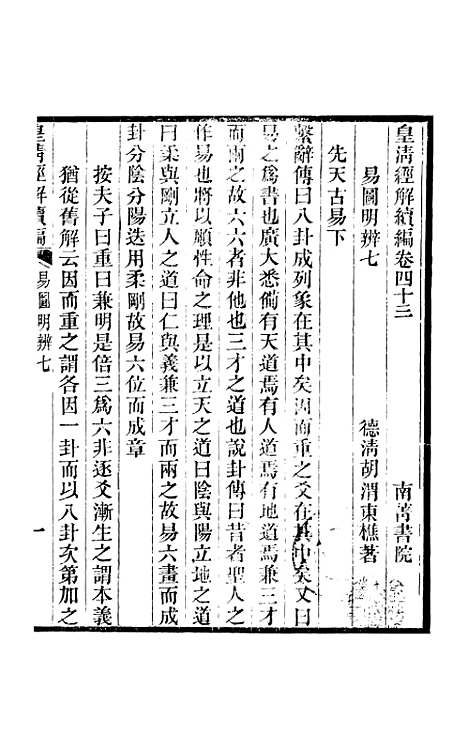 皇淸經解續編卷四十三 南菁書院
易圖明辨七 德淸胡渭東樵著
先天古易下
繫辭傳曰八卦成列象在其中矣因而重之爻在其中矣又曰
易之爲書也廣大悉備有天道焉有人道焉有地道焉兼三才
而兩之故六六者非他也三才之道也說卦傳曰昔者聖人之
作易也將以順性命之理是以立天之道曰陰與陽立地之道
曰柔與剛立人之道曰仁與義兼三才而兩之故易六畫而成
卦分陰分陽迭用柔剛故易六位而成章
按夫子曰重曰兼明是倍三爲六非逐爻漸生之謂本義
猶從舊解云因而重之謂各因一卦而以八卦次第加之
皇淸經解續編 易圖明辨七 一